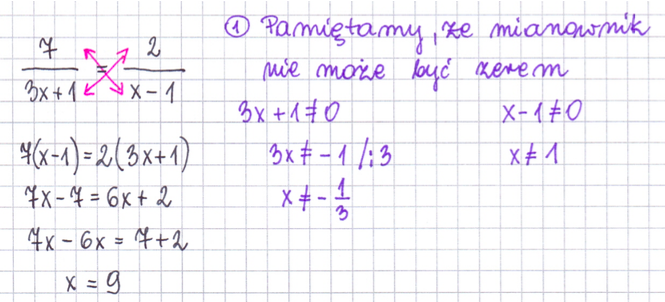 7/(3x+1) = 2/(x-1)
7(x-1)=2(3x+1)
7x-7=6x+2
7x-6x=7+2
x=9
① Pamiętamy, że mianownik
nie może być zerem
3x+1≠0
3x≠-1 /:3
x≠-1/3
x-1≠0
x≠1